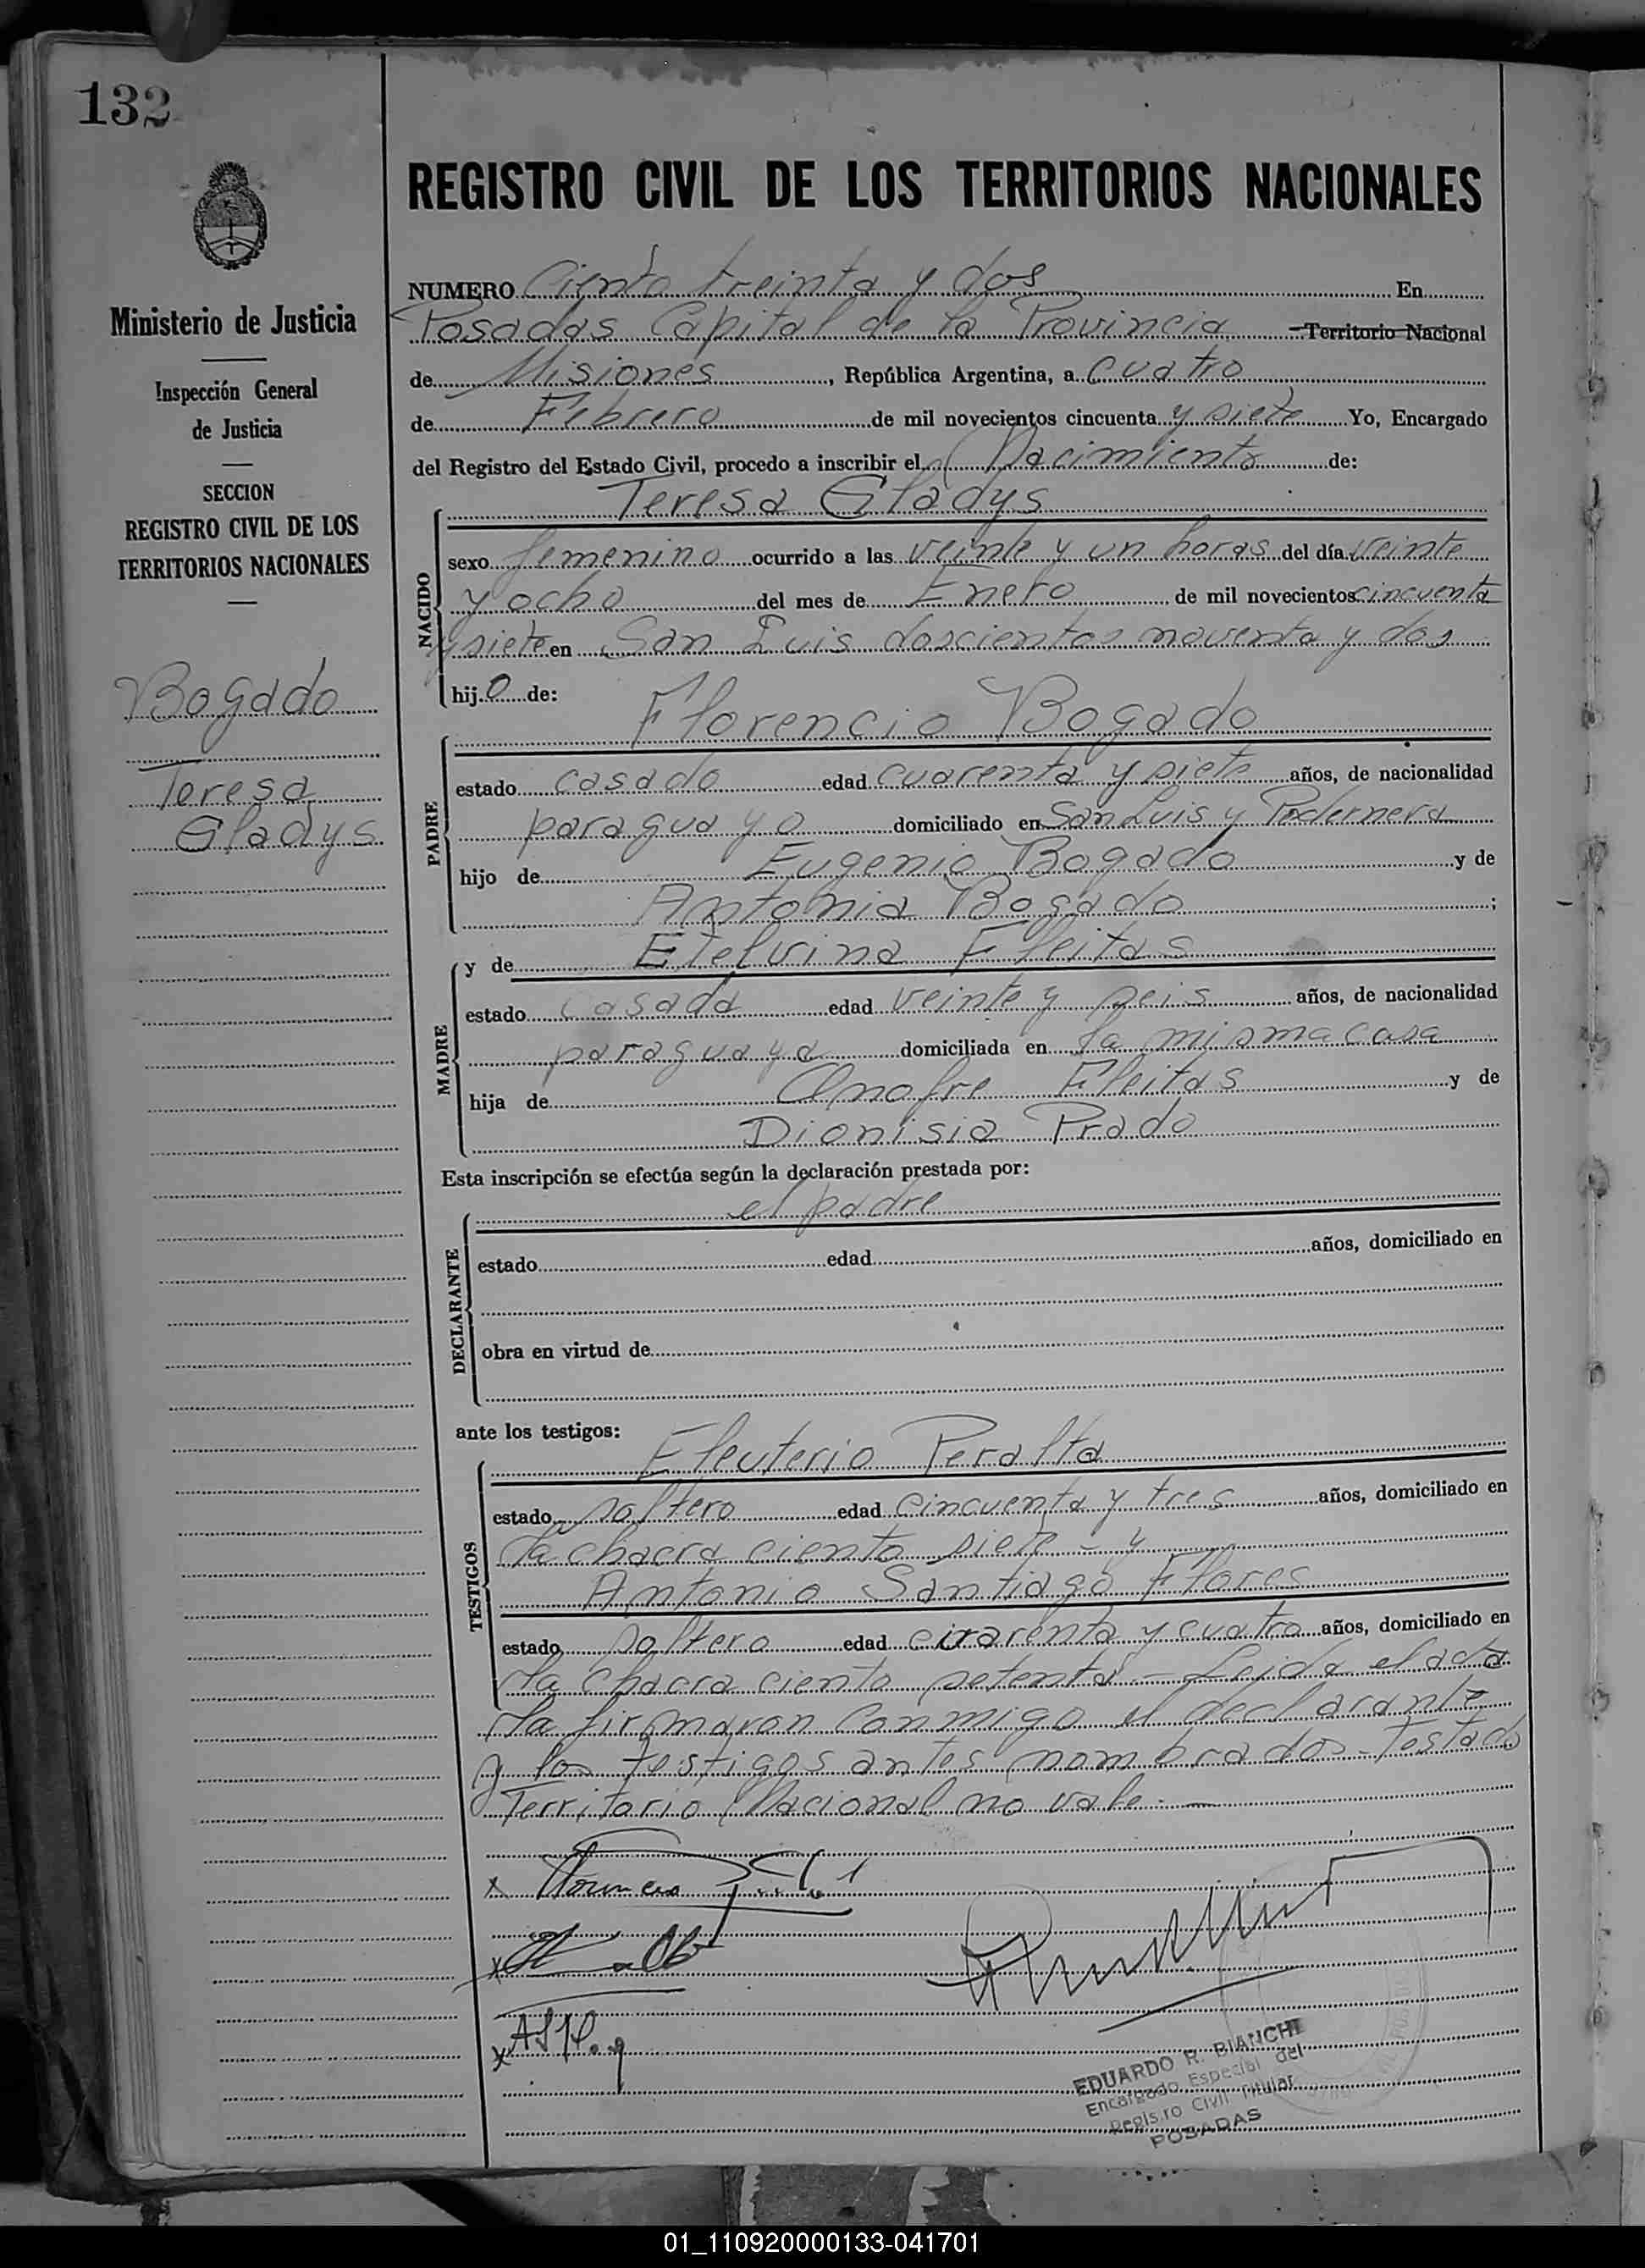 132
Ministerio de Justicia
Inspección General
de Justicia
SECCION
REGISTRO CIVIL DE LOS
TERRITORIOS NACIONALES
Bogado
Teresa
Gladys
REGISTRO CIVIL DE LOS TERRITORIOS NACIONALES
NUMERO Ciento treinta y dos En
Posadas Capital de la Provincia Territorio Nacional
de Misiones, República Argentina, a cuatro
de Febrero de mil novecientos cincuenta y siete Yo, Encargado
del Registro del Estado Civil, procedo a inscribir el Nacimiento de:
Teresa Gladys
NACIDO
sexo femenino ocurrido a las veinte y un horas del día veinte
y ocho del mes de Enero de mil novecientos cincuenta
y siete en San Luis doscientos noventa y dos
hijo de:
Florencio Bogado
PADRE
estado casado edad cuarenta y siete años, de nacionalidad
paraguayo domiciliado en San Luis y Pedernera
hijo de Eugenio Bogado y de
Antonia Bogado;
y de Etelvina Fleitas
MADRE
estado casada edad veinte y seis años, de nacionalidad
paraguaya domiciliada en la misma casa
hija de Onofre Fleitas y de
Dionisia Prado
Esta inscripción se efectúa según la declaración prestada por:
el padre
DECLARANTE
estado edad años, domiciliado en
obra en virtud de
ante los testigos:
Eleuterio Peralta
TESTIGOS
estado soltero edad cincuenta y tres años, domiciliado en
la chacra ciento siete - y
Antonio Santiago Flores
estado soltero edad cuarenta y cuatro años, domiciliado en
la chacra ciento setenta - Leida el acta
la firmaron conmigo el declarante
y los testigos antes nombrados - Testado
Territorio Nacional no vale. -
EDUARDO R. BIANCHI
Encargado Especial del
Registro Civil Titular
POSADAS
01_110920000133-041701